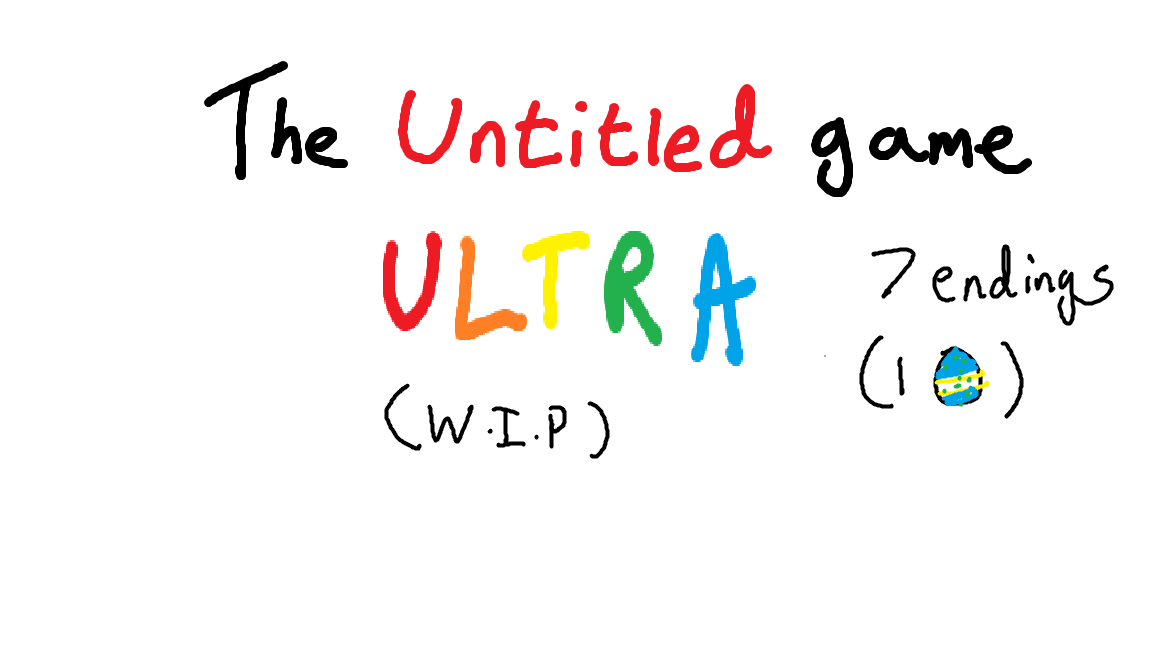 The Untitled game
ULTRA
7 endings
(1 )
(W.I.P)